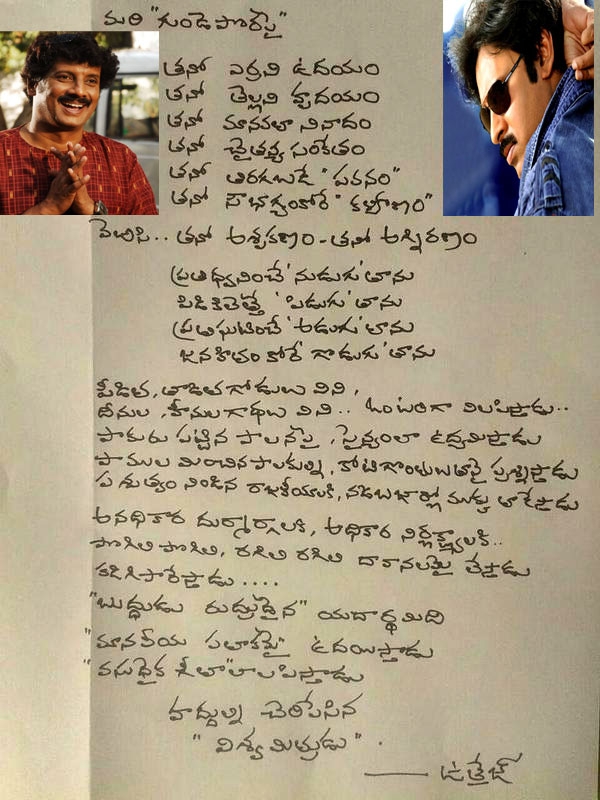 మరి "గుండె పొరపై"
తనో ఎర్రని ఉదయం
తనో తెల్లని హృదయం
తనో మానవతా నినాదం
తనో చైతన్య సంకేతం
తనో తిరగబడే "పవనం"
తనో సౌభాగ్యంకోరే "కళ్యాణం"
వెరసి.. తనో అశృకణం - తనో అగ్నిరణం
ప్రతిధ్వనించే 'నుడుగు' తాను
పిడికిలెత్తే 'పిడుగు' తాను
ప్రతిఘటించే 'అడుగు' తాను
జనహితం కోరే 'గొడుగు' తాను
పీడిత, తాడిత గోడులు విని,
దీనుల, హీనుల గాథలు విని.. ఒంటరిగా విలపిస్తాడు..
పాకురు పట్టిన పాలనపై, సైన్యంలా ఉద్యమిస్తాడు
పాముల మించిన పాలకుల్ని, కోటిగొంతుకలతానై ప్రశ్నిస్తాడు
పశుత్వం నిండిన రాజకీయాలకి, నడిబజార్లో ముక్కు తాడేస్తాడు
అనధికార దుర్మార్గాలకి, అధికార నిర్లక్ష్యాలకి..
పొగిలి పొగిలి, రగిలి రగిలి దావానలమై లేస్తాడు
కడిగిపారేస్తాడు ....
"బుద్ధుడు రుద్రుడైన" యదార్థమిది
"మానవీయ పతాకమై" ఉదయిస్తాడు
"వసుధైక గీతా"లాలపిస్తాడు
హద్దుల్ని చెరిపేసిన
"విశ్వమిత్రుడు".
— ఉత్తేజ్